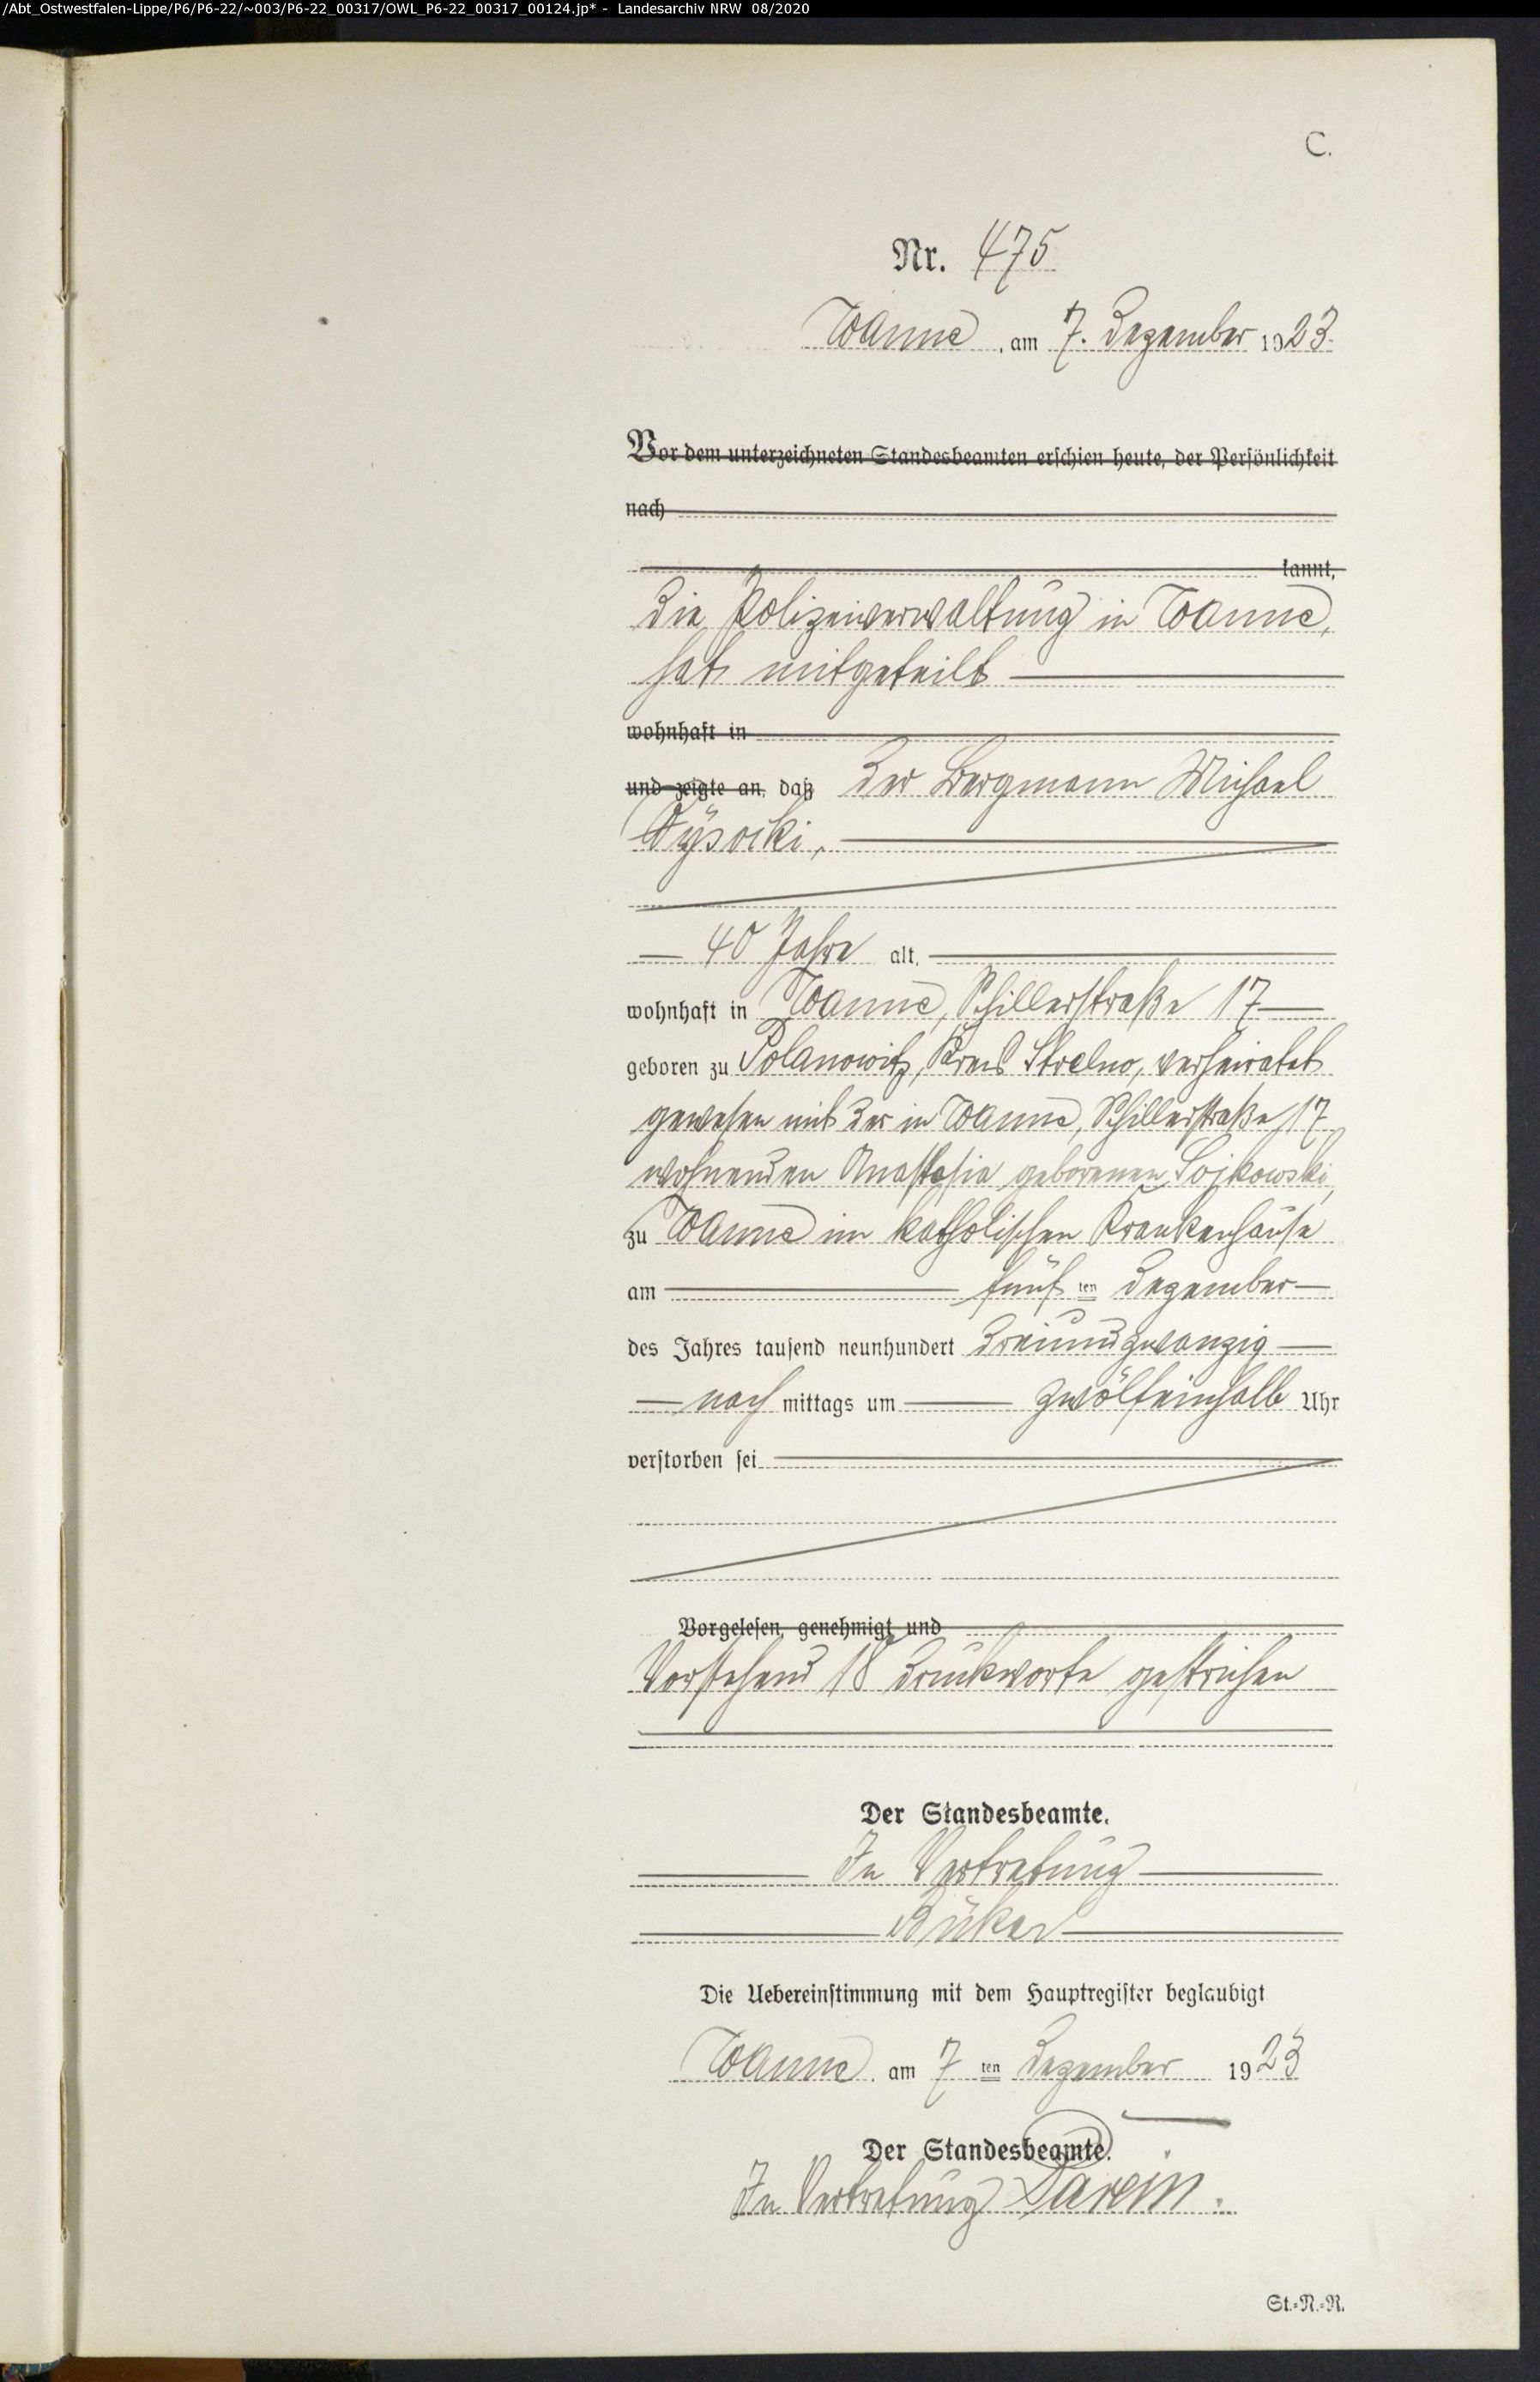 /Abt_Ostwestfalen-Lippe/P6/P6-22/~003/P6-22_00317/OWL_P6-22_00317_00124.jp* - Landesarchiv NRW 08/2020
C.
Nr. 475
Wanne, am 7. Dezember 1923.
Vor dem unterzeichneten Standesbeamten erschien heute, der Persönlichkeit
nach
kannt,
Die Polizeiverwaltung in Wanne,
hat mitgeteilt
wohnhaft in
und zeigte an, daß der Bergmann Michael
Wysocki,
40 Jahre alt,
wohnhaft in Wanne, Schillerstraße 17
geboren zu Polanowitz, Kreis Strelno, verheiratet
gewesen mit der in Wanne, Schillerstraße 17
wohnenden Anastasia geborenen Sojkowski,
zu Wanne im katholischen Krankenhause
am fünf ten Dezember
des Jahres tausend neunhundert dreiundzwanzig
nach mittags um zwölfeinhalb Uhr
verstorben sei
Vorgelesen, genehmigt und
Vorstehend 18 Druckworte gestrichen
Der Standesbeamte.
In Vertretung
Büker
Die Uebereinstimmung mit dem Hauptregister beglaubigt
Wanne, am 7 ten Dezember 1923
Der Standesbeamte.
In Vertretung
St.-N.-R.